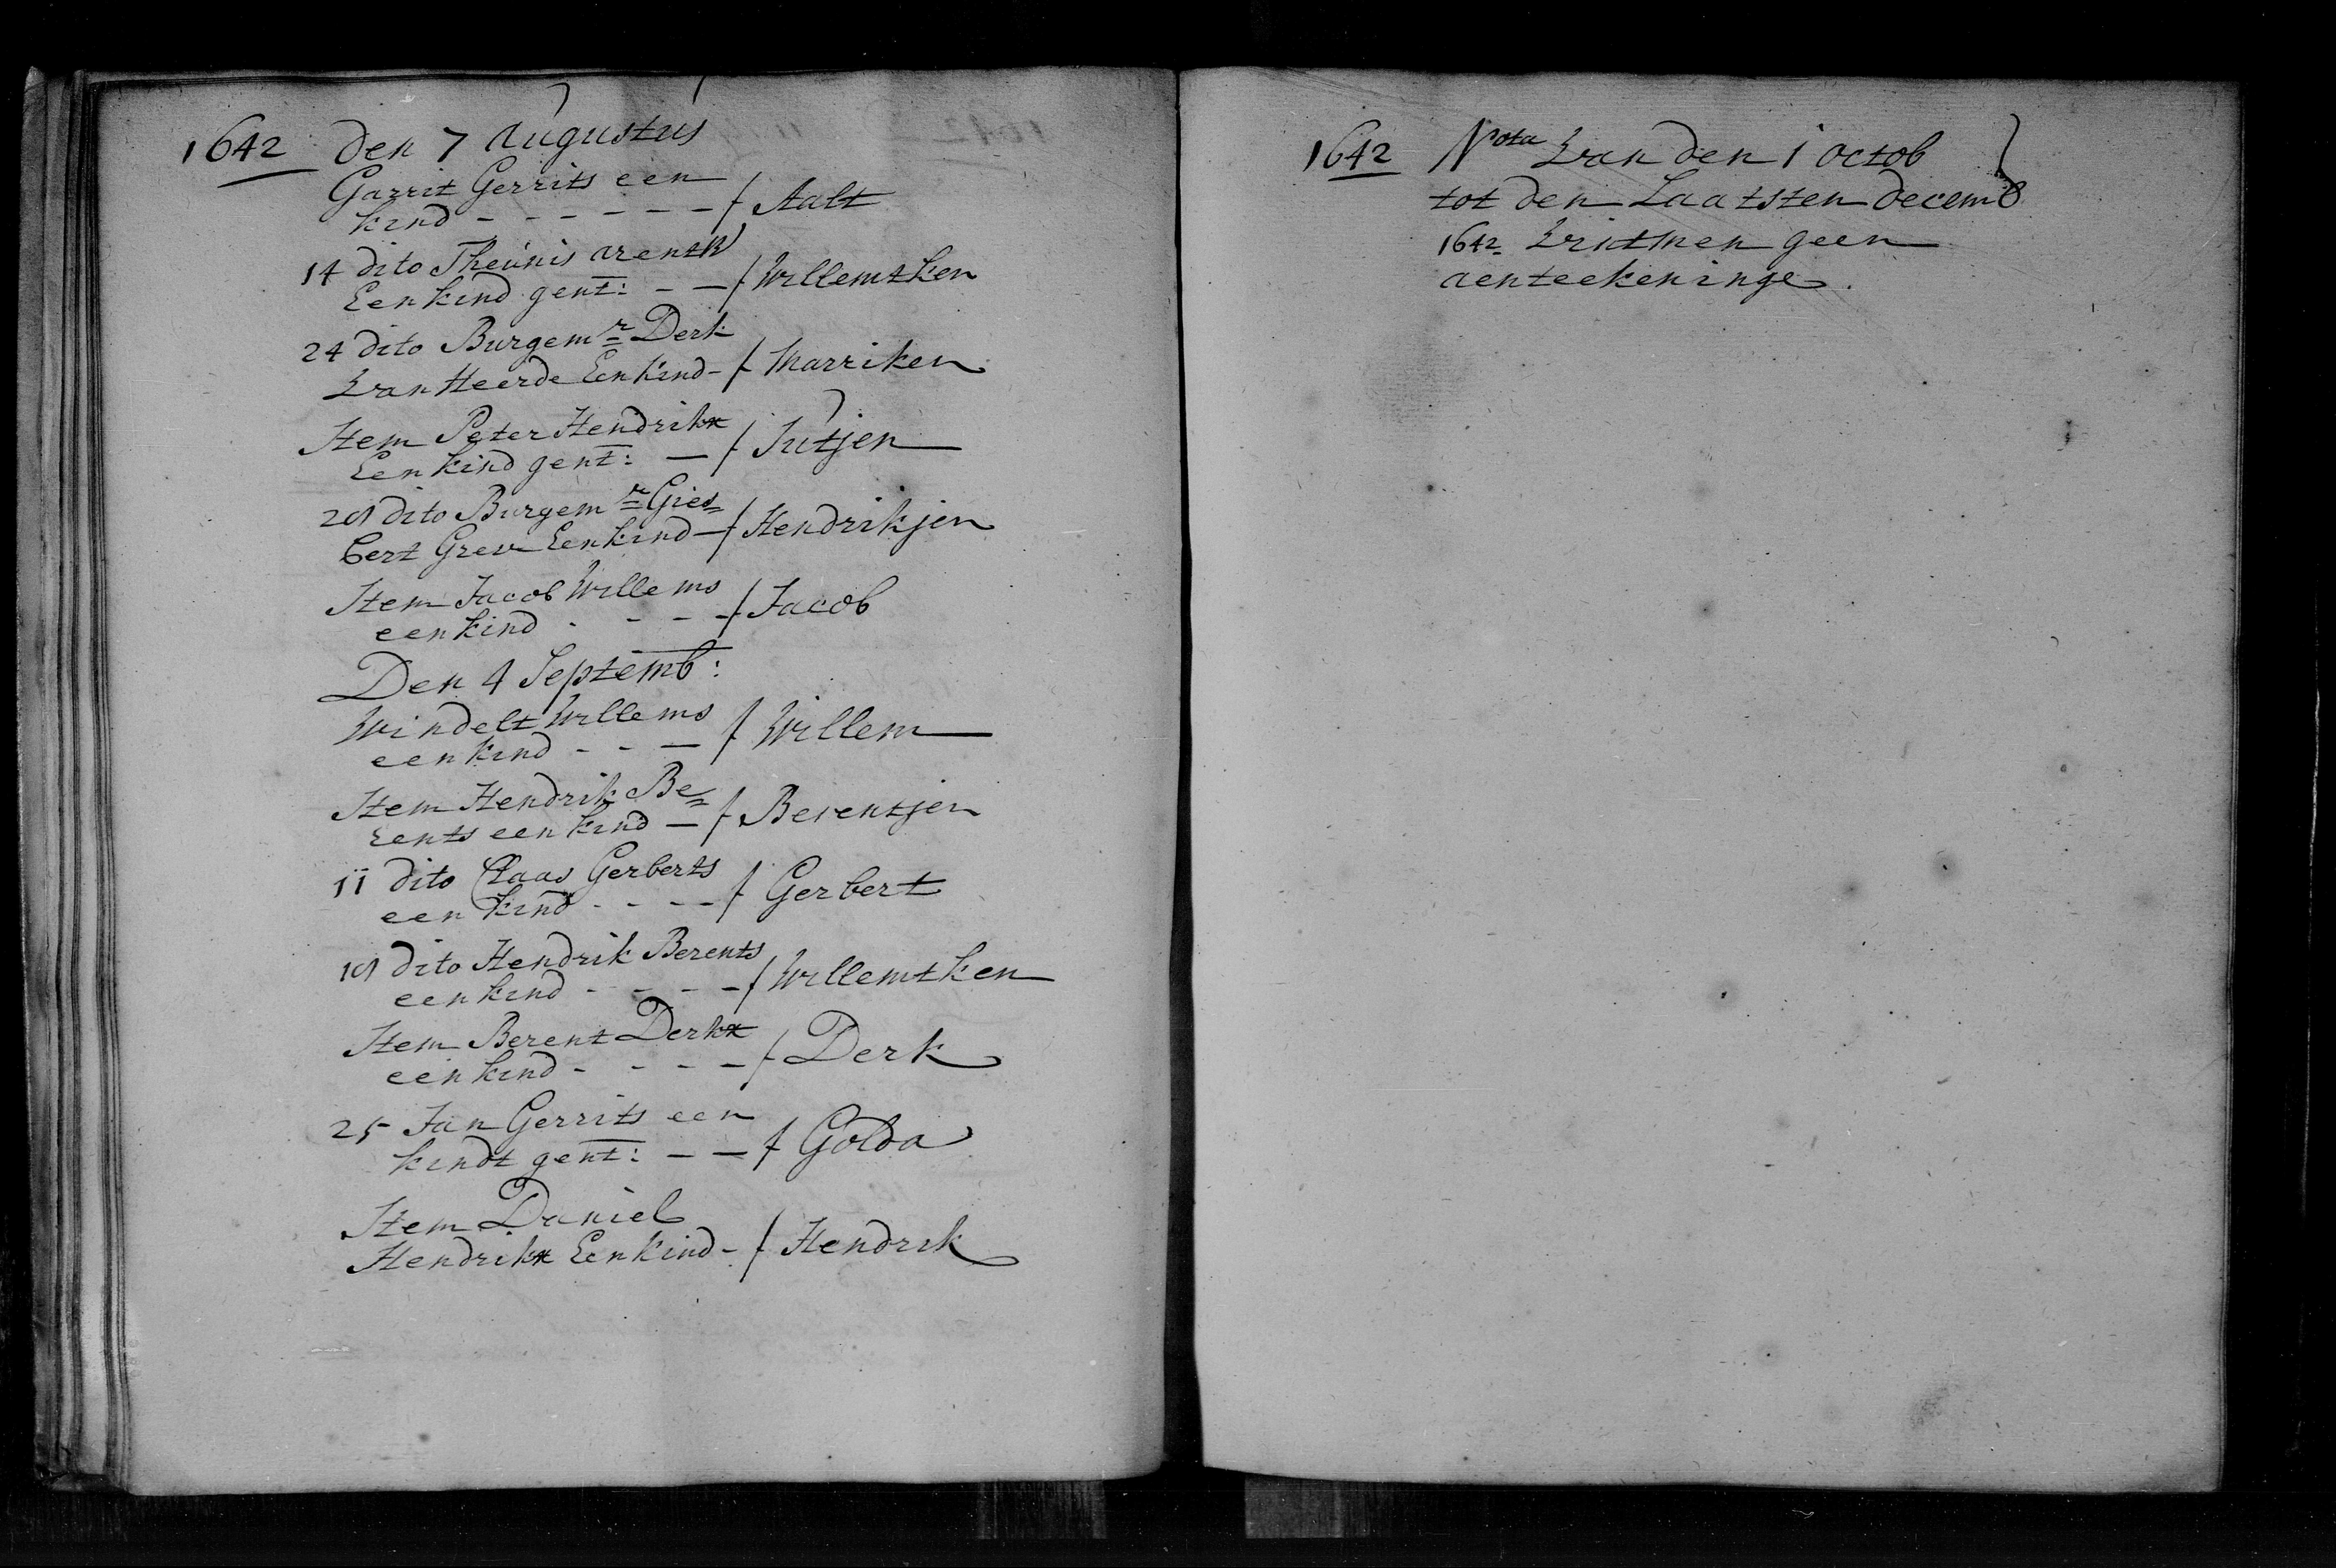 1642 den 7 augustus
Garrit Gerrits een
kind - - - - - - / Aalt
14 dito Theunis arents
Een kind gent: - - / Willemtken
24 dito Burgemr Derk
van Heerde Een kind - / Marriken
Item Peter Hendrikx
Een kind gent: - / Jutjen
29 dito Burgemr Gies=
bert Greve Een kind - / Hendrikjen
Item Jacob Willems
een kind - - - - / Jacob
Den 4 Septemb:
Windelt Willems
een kind - - - / Willem
Item Hendrik Be=
rents een kind - / Berentjen
11 dito Claas Gerberts
een kind - - - - / Gerbert
19 dito Hendrik Berents
een kind - - - - / Willemtken
Item Berent Derkx
een kind - - - - / Derk
25 Jan Gerrits een
kindt gent: - - / Golda
Item Daniel
Hendrikx Een kind - / Hendrik
1642 Nota van den 1 octob
tot den Laatsten decemb
1642 vintmen geen
aenteekeninge.